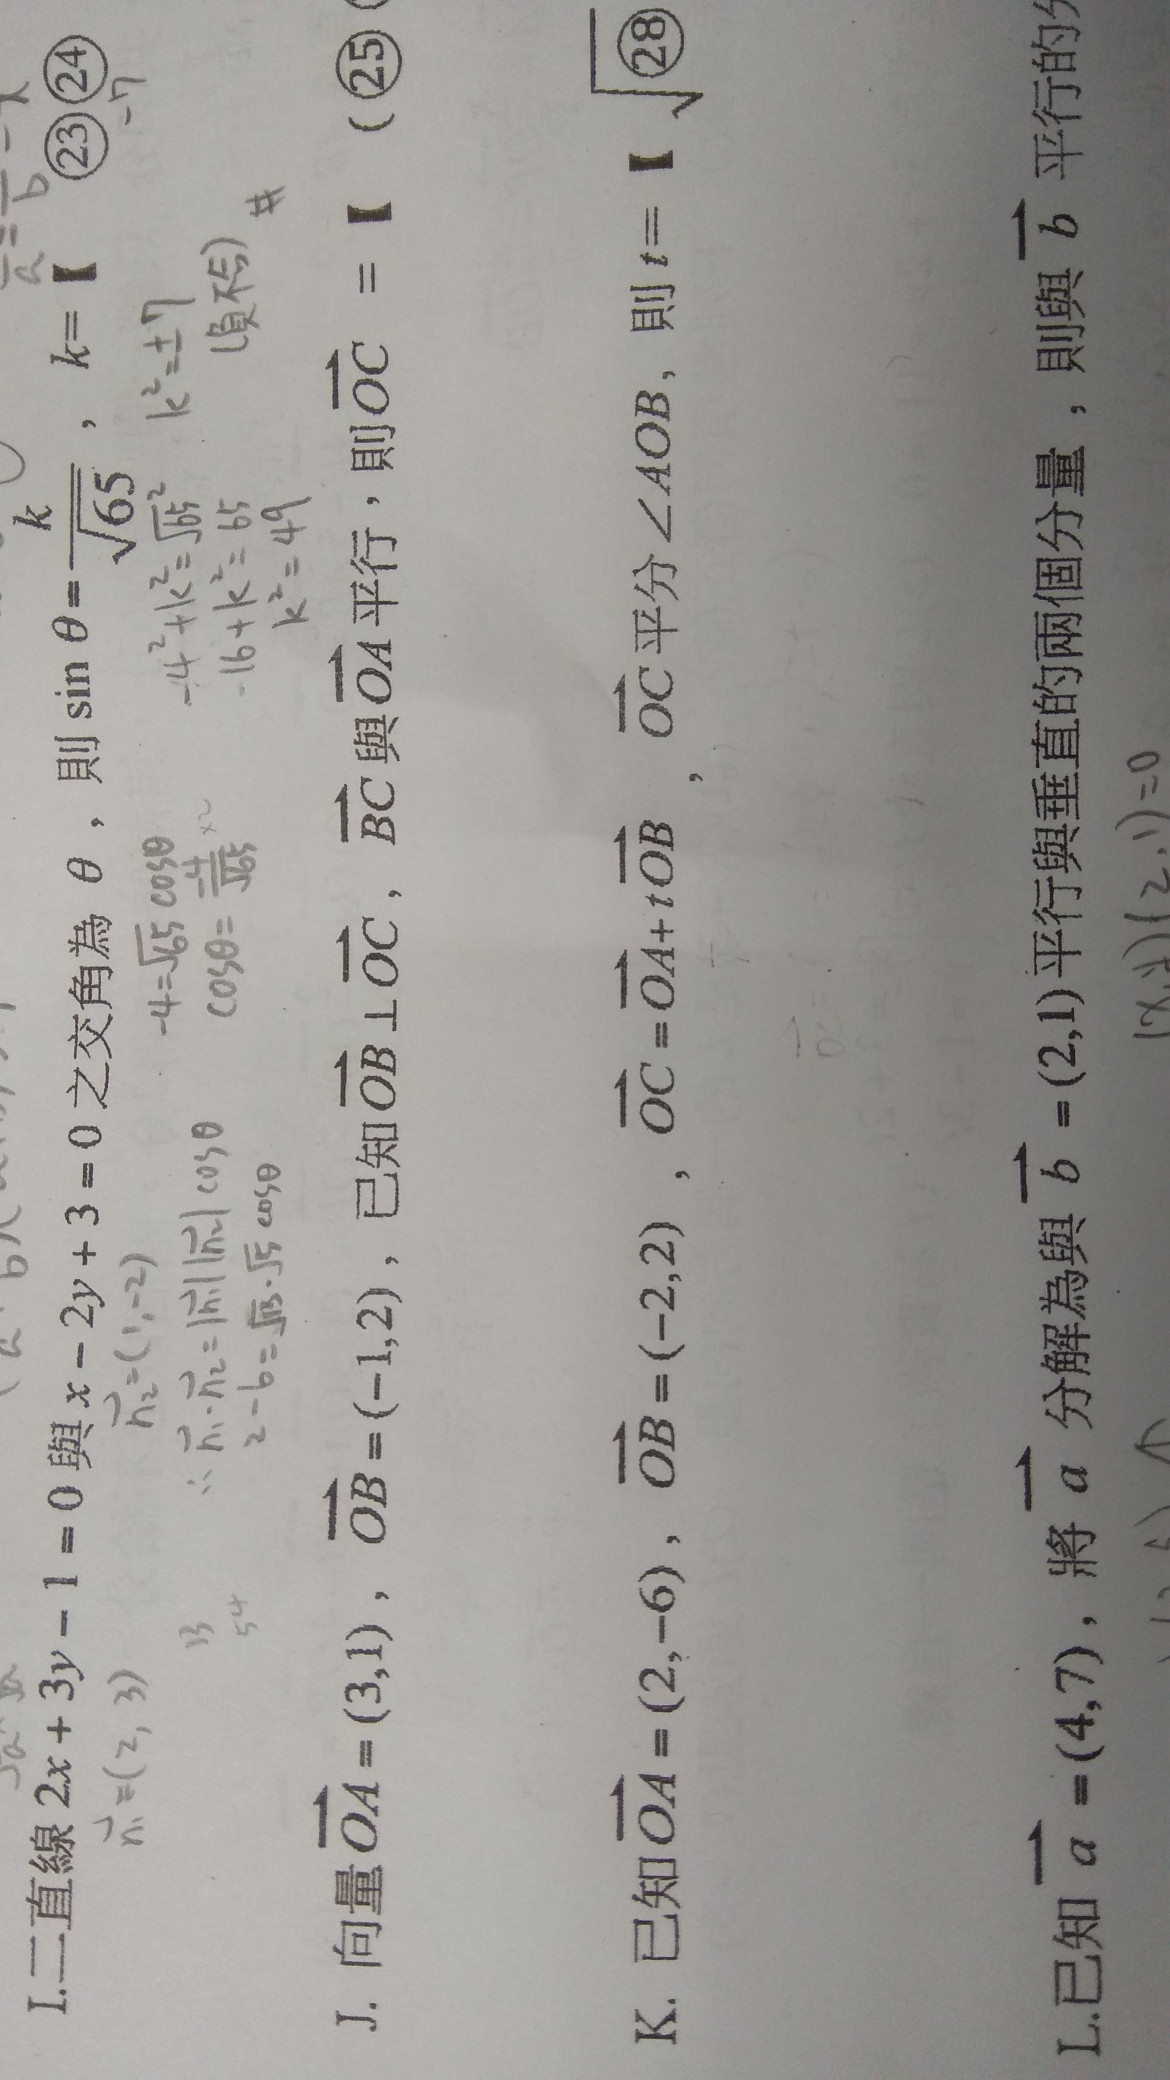 I.二直線 2x + 3y − 1 = 0 與 x − 2y + 3 = 0 之交角為 θ，則 sin θ = k/√65，k=【 ㉓㉔
n₁=(2, 3) n₂=(1,-2) -7
∴ n₁·n₂=|n₁||n₂| cosθ
2-6=√13·√5 cosθ
-4=√65 cosθ
cosθ= -4/√65
-4²+k²=√65²
-16+k²=65
k²=49
k²=±7
(負不合) #
13
54
J. 向量OA = (3,1)，OB = (−1,2)，已知OB⊥OC，BC與OA平行，則OC =【 (㉕
K. 已知OA = (2,−6)，OB = (−2,2)，OC = OA + tOB，OC平分∠AOB，則 t=【 √㉘
L.已知 a = (4,7)，將 a 分解為與 b = (2,1)平行與垂直的兩個分量，則與 b 平行的分
(x,y)(2,1)=0